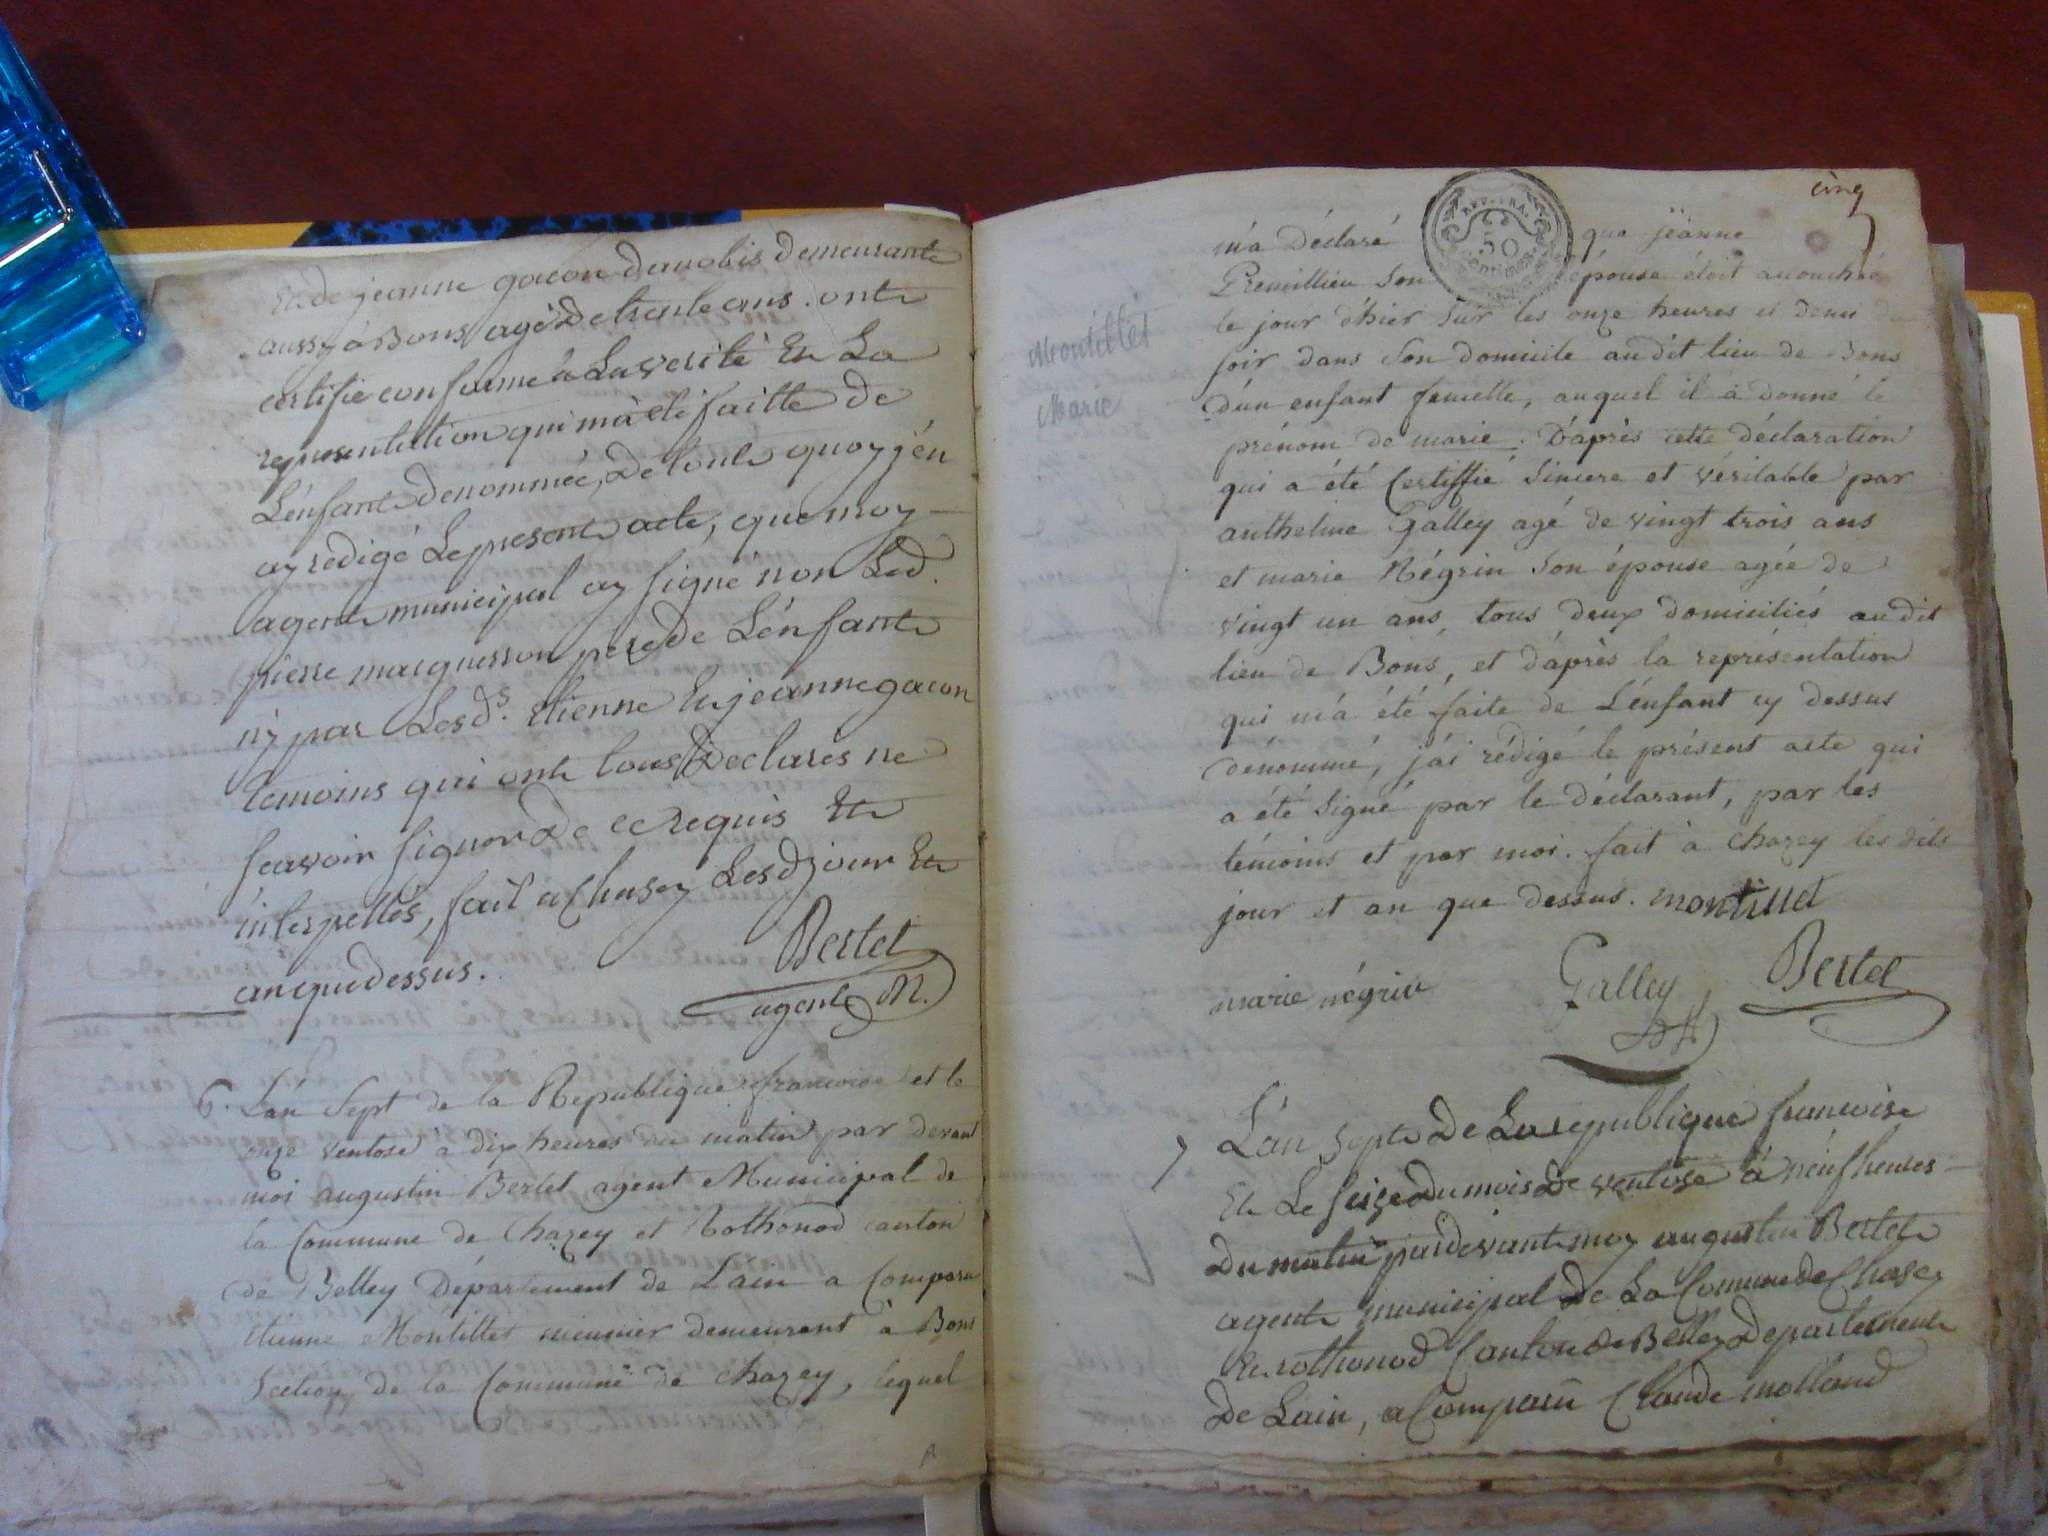 Et de jeanne gacon demolis demeurante
aussy à Bons agéé de trente ans. ont
certifie conforme à La verité Et La
representation qui m'a eté faitte de
L'enfant denommée, de tout quoy j'en
ay redigé Le present acte, que moy
agent municipal ay signé non Led.
pierre marquesson pere de L'enfant
ny par Lesds. etienne Et jeanne gacon
temoins qui ont tous declarés ne
scavoir signer de ce requis Et
interpellés, fait a Chasey Lesd jour Et
an que dessus.
Bertet
agent M.
6. L'an Sept de la Republique francoise et le
onze ventose a dix heures du matin par devant
moi augustin Bertet agent Municipal de
la Commune de Chazey et Rothonod canton
de Belley Département de Lain a Comparu
etienne Montillet meunier demeurant à Bons
Section de la Commune de Chazey, lequel
cinq
REP. FRA.
50
Centimes
m'a Déclaré que jeanne
Preveillieu Son épouse étoit accouchée
le jour d'hier sur les onze heures et demi du
soir dans son domicile audit lieu de Bons
d'un enfant femelle, auquel il à donné le
prénom de marie. D'après cette déclaration
qui a été Certiffié Sincere et véritable par
anthelme Galley agé de vingt trois ans
et marie Négrin son épouse agée de
vingt un ans, tous deux domiciliés audit
lieu de Bons, et d'après la représentation
qui m'a été faite de L'énfant cy dessus
dénommé, j'ai rédigé le présent acte qui
a été signé par le déclarant, par les
témoins et par moi. fait à Chazey les dits
jour et an que dessus. montillet
marie négrin Galley Bertet
Montillet
Marie
7 L'an Sept de La republique francoise
Et Le seize du mois de ventose à neuf heures
du matin pardevant moy augustin Bertet
agent municipal de La Commune de Chasey
Et rothonod Canton de Belley Departement
de Lain, a Comparu Claude molland